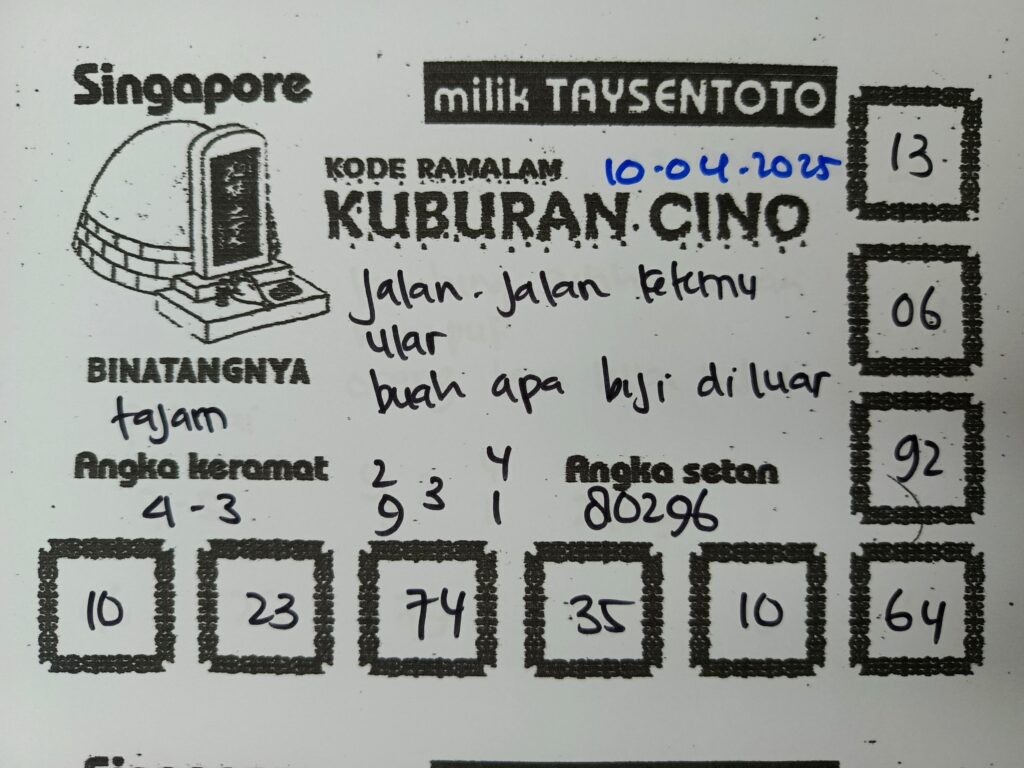 Singapore
milik TAYSENTOTO
KODE RAMALAM 10-04-2025
KUBURAN CINO
Jalan-Jalan ketemu
ular
buah apa biji diluar
BINATANGNYA
tajam
Angka keramat
4-3
2 4
9 3 1
Angka setan
80296
13
06
92
10 23 74 35 10 64